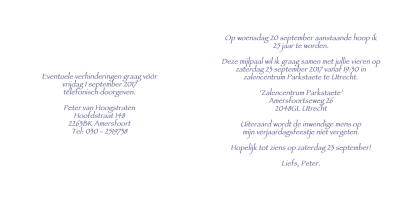 Eventuele verhinderingen graag vóór
vrijdag 1 september 2017
telefonisch doorgeven.
Peter van Hoogstraten
Hoofdstraat 148
2263BK Amersfoort
Tel: 030 - 2519758
Op woensdag 20 september aanstaande hoop ik
25 jaar te worden.
Deze mijlpaal wil ik graag samen met jullie vieren op
zaterdag 23 september 2017 vanaf 19:30 in
zalencentrum Parkstaete te Utrecht.
'Zalencentrum Parkstaete'
Amersfoortseweg 26
2048GL Utrecht
Uiteraard wordt de inwendige mens op
mijn verjaardagsfeestje niet vergeten.
Hopelijk tot ziens op zaterdag 23 september!
Liefs, Peter.